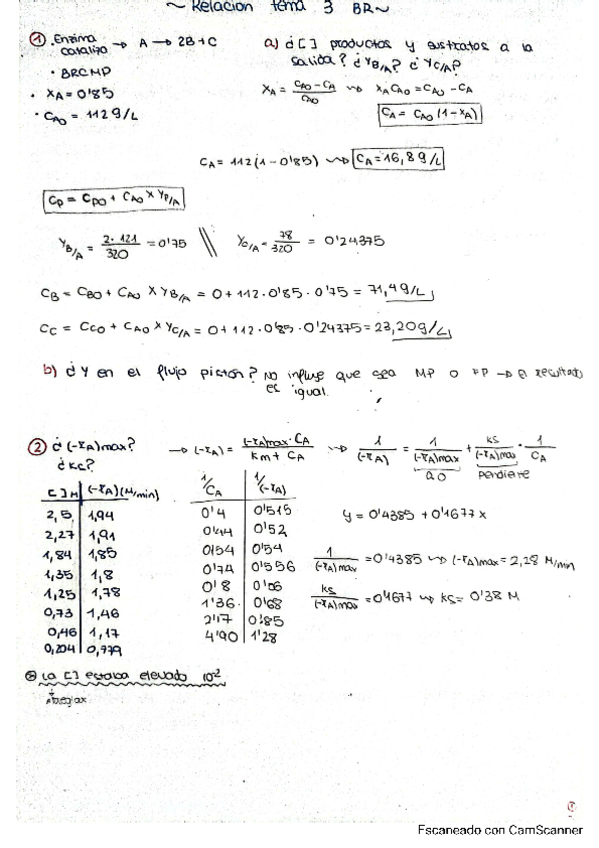 ~ Relación tema 3 BR ~
① . Enzima cataliza → A → 2B + C
• BRCMP
• XA = 0'85
• CAO = 112 g/L
a) ¿[ ] productos y sustratos a la salida? ¿YB/A? ¿YC/A?
XA = (CAO - CA)/CAO ⇝ XA CAO = CAO - CA
CA = CAO (1 - XA)
CA = 112 (1 - 0'85) ⇝ CA = 16,8 g/L
CP = CPO + CAO X YP/A
YB/A = 2·121/320 = 0'75 // YC/A = 78/320 = 0'24375
CB = CBO + CAO X YB/A = 0 + 112·0'85·0'75 = 71,4 g/L
CC = CCO + CAO X YC/A = 0 + 112·0'85·0'24375 = 23,20 g/L
b) ¿Y en el flujo pistón? No influye que sea MP o FP → El resultado
es igual.
② ¿(-rA)max? → (-rA) = (-rA)max · CA / Km + CA ⇝ 1/(-rA) = 1/(-rA)max + ks/(-rA)max · 1/CA
¿KC?
a0
pendiente
[ ] M | (-rA) (M/min)
2,5 | 1,94
2,27 | 1,91
1,84 | 1,85
1,35 | 1,8
1,25 | 1,78
0,73 | 1,46
0,46 | 1,17
0,204 | 0,779
1/CA | 1/(-rA)
0'4 | 0'515
0'44 | 0'52
0'54 | 0'54
0'74 | 0'556
0'8 | 0'56
1'36 | 0'68
2'17 | 0'85
4'90 | 1'28
y = 0'4385 + 0'1677 x
1/(-rA)max = 0'4385 ⇝ (-rA)max = 2,28 M/min
ks/(-rA)max = 0'1677 ⇝ ks = 0'38 M
La [ ] estaba elevado 10²
Escaneado con CamScanner